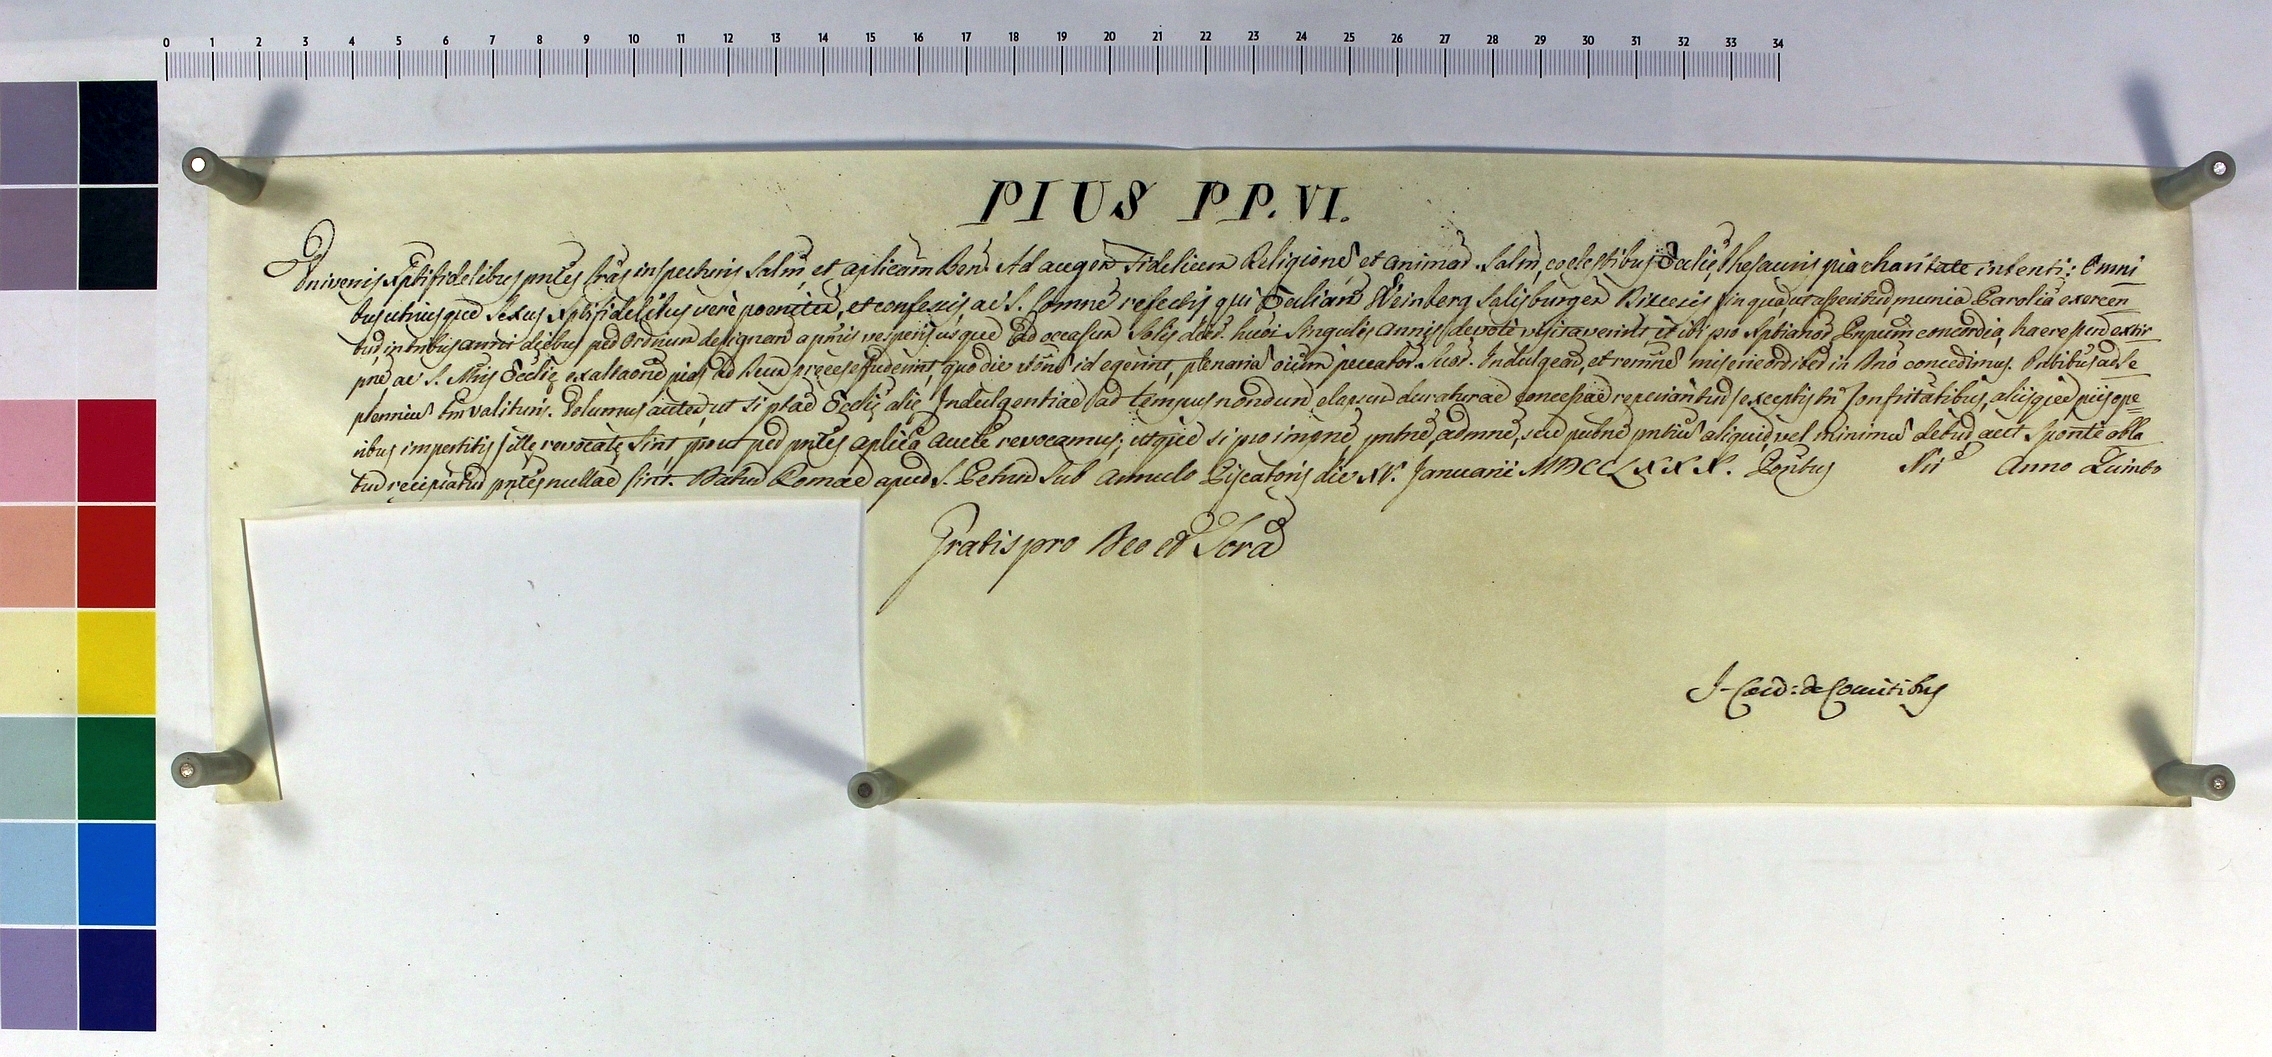 0 1 2 3 4 5 6 7 8 9 10 11 12 13 14 15 16 17 18 19 20 21 22 23 24 25 26 27 28 29 30 31 32 33 34
PIUS PP. VI.
Universis Xptifidelibus pntes lras inspecturis Salm, et aplicam Ben. Ad augen Fidelium Religione et animar. Salm coelestibus Eccliae Thesauris pia charitate intenti: Omni
bus utriusque Sexus Xptifidelibus vere poeniten, et confessis, ac S. Comne refectis qui Weinberg Salisburgen Dioecesis in qua, ut asseritur, munia Parolia exercen
tur, in tribus anni diebus ped Ordrium designan a primis vesperis usque ad occasum Solis dier. hmoi Singulis annis devote visitaverint et ibi pro Xptianor Pnpum concordia, haeresum extir
pne ac S. Mris Eccliae exaltaone pias ad Deum preces effuderint, quo die id egerint, plenaria oium peccator. Suor. Indulgean, et remne misericorditer in Dno concedimus. Pntibus ad Se
ptennium tm valituris. Volumus autem, ut si Eccliae aliae Indulgentiae ad tempus nondum elapsum duraturae concessae reperiantur exceptis tn Confritatibus, aliisque piis ope
ribus impertitis illae revocatae Sint prout ped pntes aplica aucte revocamus; utque si pro impne, pntne, admne, seu pubne pntium aliquid vel minimum detur, aut Sponte obla
tum recipiatur pntes nullae sint. Datum Romae apud S. Petrum Sub Annulo Piscatoris die XV. Januarii MDCCLXXX. Pontus Nri Anno Quinto
Gratis pro Deo et Scra
J. Card: de Comitibus